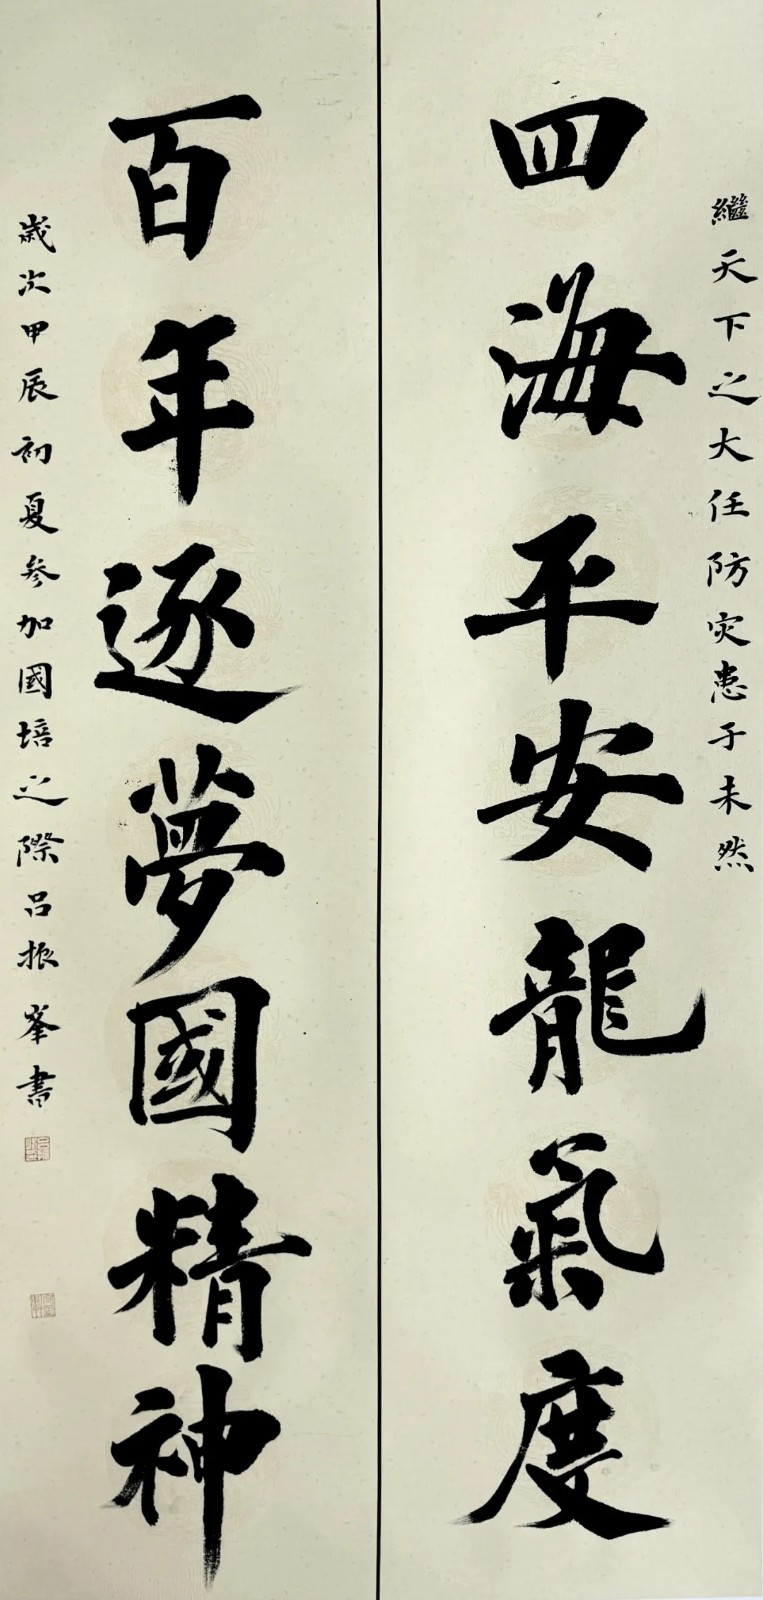 繼天下之大任防灾患于未然
四海平安龍氣度
百年逐夢國精神
歲次甲辰初夏參加國培之際呂振峯書